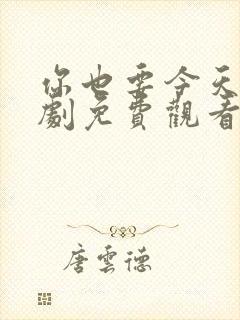 你也要今天
劇免費觀看
唐雲德